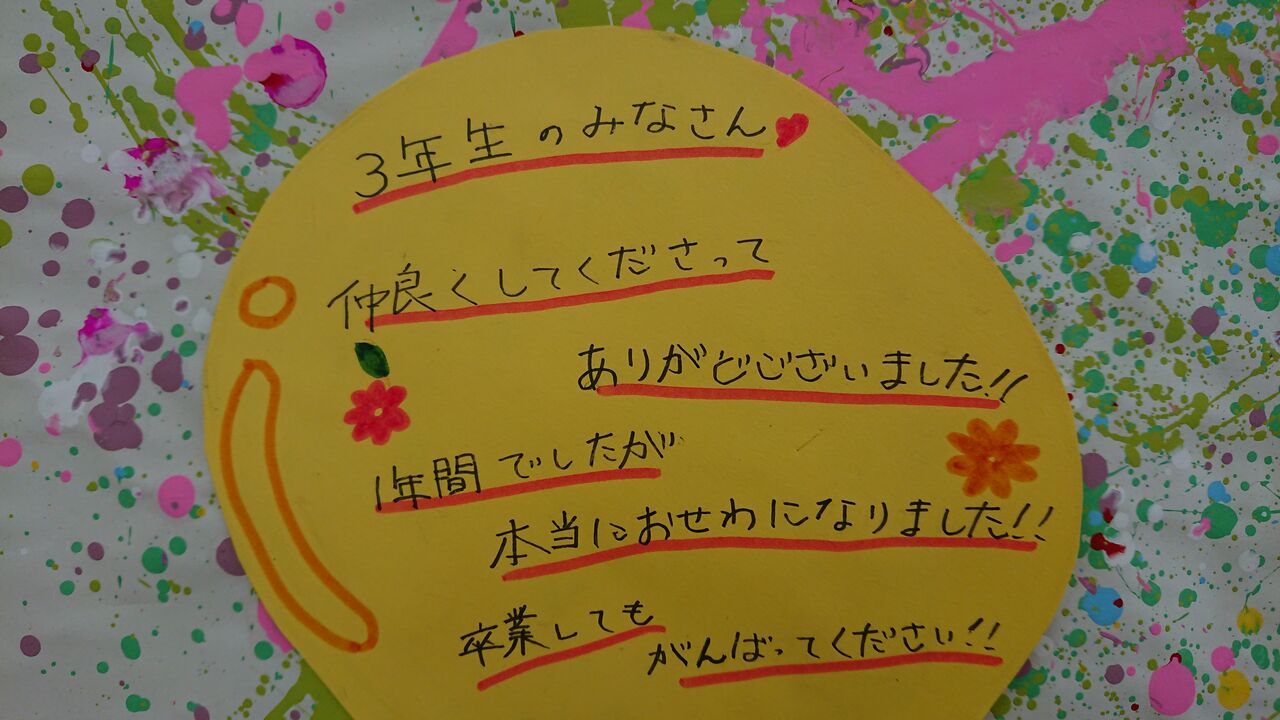 3年生のみなさん
仲良くしてくださって
ありがどございました!!
1年間でしたが
本当におせわになりました!!
卒業しても
がんばってください!!